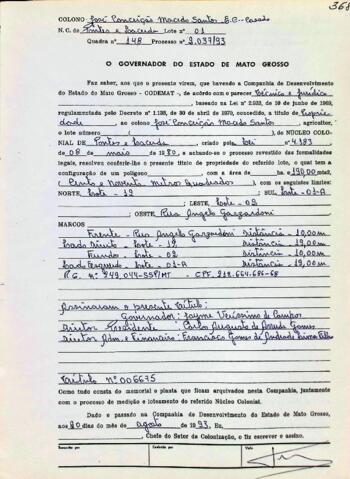 368
COLONO José Conceição Macedo Santos B.C.- Casado
N. C. de Pontes e Lacerda Lote nº 01
Quadra nº 148 Processo nº 2.037/93
O GOVERNADOR DO ESTADO DE MATO GROSSO
Faz saber, aos que o presente virem, que havendo a Companhia de Desenvolvimento
do Estado do Mato Grosso - CODEMAT -, de acôrdo com o parecer Técnico e Jurídico
, baseado na Lei nº 2.933, de 10 de junho de 1969,
regulamentada pelo Decreto nº 1.138, de 30 de abril de 1970, concedido, a título de Proprie
dade, ao colono José Conceição Macedo Santos, agricultor,
o lote número (), do NÚCLEO COLO-
NIAL DE Pontes e Lacerda criado pela Lei nº 4.183
de 08 de maio de 1980, e achando-se o processo revestido das formalidades
legais, resolveu conferir-lhe o presente título de propriedade do referido lote, o qual tem a
configuração de um polígono, com a área de ha e 190,00 mts2,
(Cento e Noventa Metros Quadrados), com os seguintes limites:
NORTE, Lote - 12 ; SUL, Lote - 01-A
; LESTE, Lote - 02
; OESTE, Rua Angelo Gazzardoni
MARCOS
Frente - Rua Angelo Gazzardoni Distância - 10,00m
Lado Direito - Lote - 12 Distância - 19,00m
Fundos - Lote - 02 Distância - 10,00m
Lado Esquerdo - Lote - 01-A Distância - 19,00m
R.G. nº 249.044-SSP/MT - CPF.
Assinaram o presente título:
Governador: Jayme Veríssimo de Campos
Diretor Presidente : Carlos Augusto de Arruda Gomes
Diretor Adm. e Financeiro: Francisco Gomes de Andrade Lima Filho
Título Nº 006675
Como tudo consta do memorial e planta que ficam arquivados nesta Companhia, juntamente
com o processo de medição e loteamento do referido Núcleo Colonial.
Dado e passado na Companhia de Desenvolvimento do Estado do Mato Grosso,
aos 20 dias do mês de agosto de 1993, Eu,
, Chefe do Setor de Colonização, o fiz escrever e assino.
Transcrito por
Conferido por
Visto